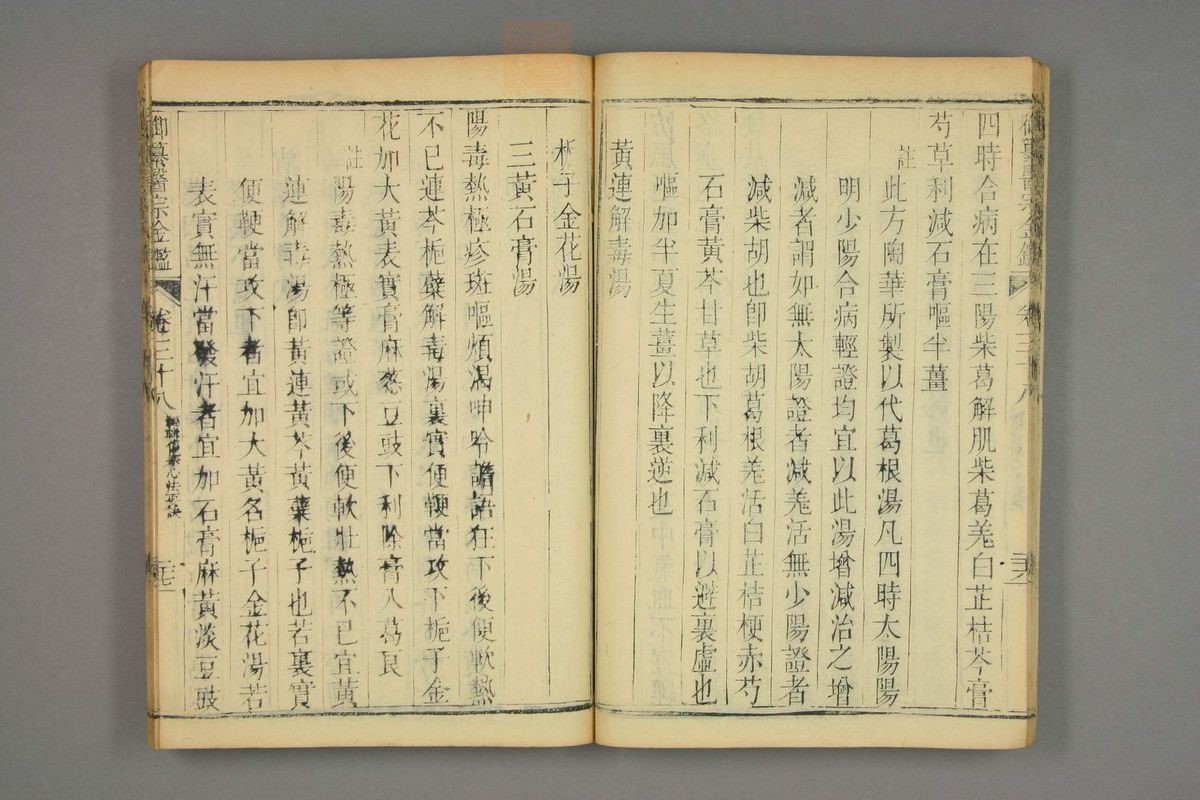 四時合病在三陽柴葛解肌柴葛羗白芷桔芩膏
芍草利減石膏嘔半薑
註
此方陶華所製以代葛根湯凡四時太陽陽
明少陽合病輕證均宜以此湯增減治之增
減者謂如無太陽證者減羗活無少陽證者
減柴胡也卽柴胡葛根羗活白芷桔梗赤芍
石膏黃芩甘草也下利減石膏以避裏虛也
嘔加半夏生薑以降裏逆也
黃連解毒湯
梔子金花湯
三黃石膏湯
陽毒熱極疹斑嘔煩渴呻吟譫語狂下後便軟熱
不已連芩梔蘗解毒湯裏實便鞕當攻下梔子金
花加大黃表實膏麻葱豆豉下利除膏入葛良
註
陽毒熱極等證或下後便軟壯熱不已宜黃
連解毒湯卽黃連黃芩黃蘗梔子也若裏實
便鞕當攻下者宜加大黃名梔子金花湯若
表實無汗當發汗者宜加石膏麻黃淡豆豉
御纂醫宗金鑑
卷三十八
三七